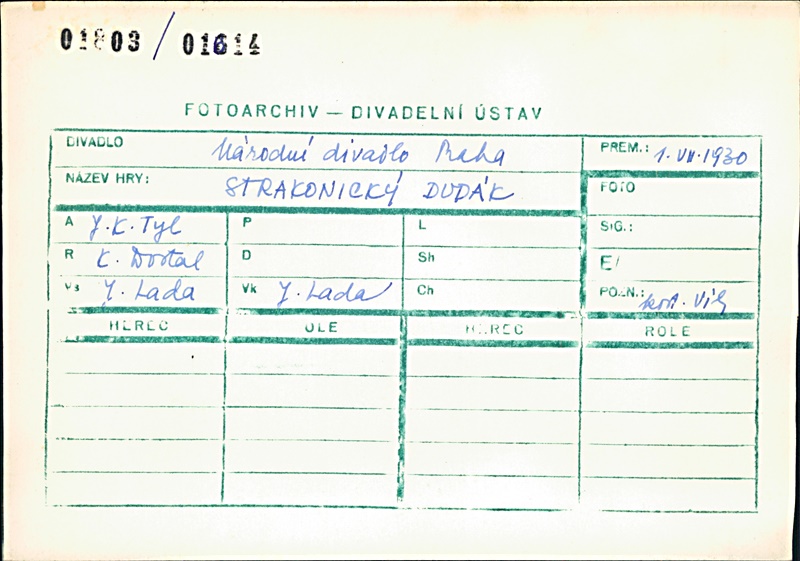 01803 / 01614
FOTOARCHIV — DIVADELNÍ ÚSTAV
DIVADLO Národní divadlo Praha PREM.: 1.VII.1930
NÁZEV HRY: STRAKONICKÝ DUDÁK FOTO
A J.K. Tyl P L SIG.:
R K. Dostal D Sh E/
Vs J. Lada Vk J. Lada Ch POZN.: kost. Víly
HEREC ROLE HEREC ROLE